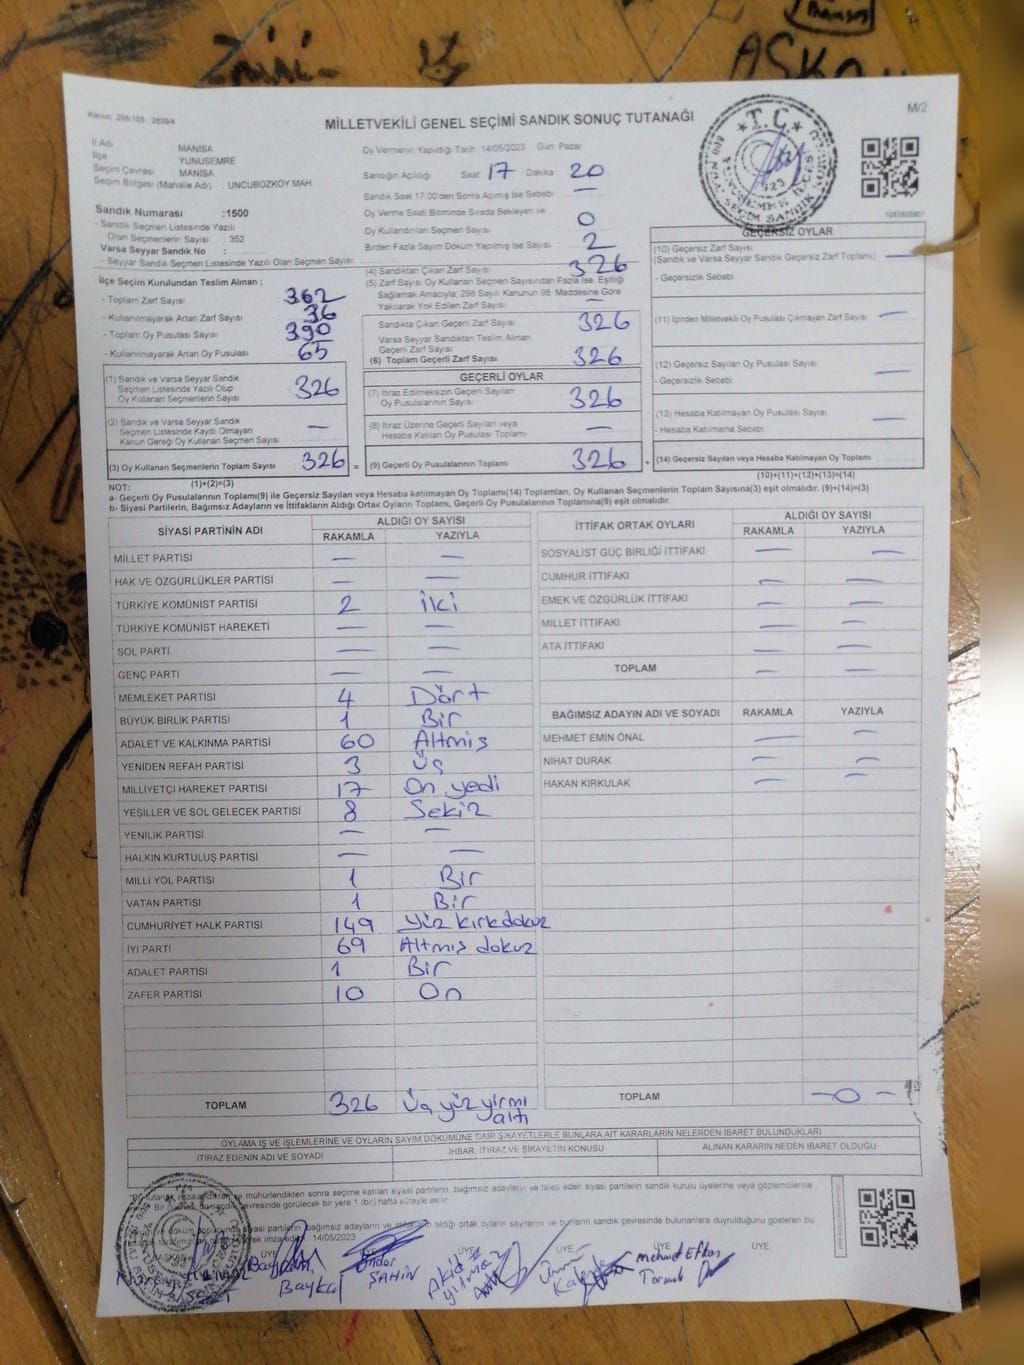 Kanun: 298/105 2839/4
MİLLETVEKİLİ GENEL SEÇİMİ SANDIK SONUÇ TUTANAĞI
M/2
İl Adı MANİSA
İlçe YUNUSEMRE
Seçim Çevresi MANİSA
Seçim Bölgesi (Mahalle Adı) UNCUBOZKÖY MAH.
Sandık Numarası :1500
- Sandık Seçmen Listesinde Yazılı
Olan Seçmenlerin Sayısı : 352
Varsa Seyyar Sandık No :
- Seyyar Sandık Seçmen Listesinde Yazılı Olan Seçmen Sayısı:
Oy Vermenin Yapıldığı Tarih 14/05/2023 Gün: Pazar
Sandığın Açıldığı Saat 17 Dakika 20
Sandık Saat 17:00'den Sonra Açılmış İse Sebebi —
Oy Verme Saati Bitiminde Sırada Bekleyen ve
Oy Kullandırılan Seçmen Sayısı 0
Birden Fazla Sayım Döküm Yapılmış İse Sayısı 2
T.C.
YUNUSEMRE İLÇE
SEÇİM SANDIK KURULU
İlçe Seçim Kurulundan Teslim Alınan ;
- Toplam Zarf Sayısı 362
- Kullanılmayarak Artan Zarf Sayısı 36
- Toplam Oy Pusulası Sayısı 390
- Kullanılmayarak Artan Oy Pusulası 65
(1) Sandık ve Varsa Seyyar Sandık
Seçmen Listesinde Yazılı Olup
Oy Kullanan Seçmenlerin Sayısı 326
(2) Sandık ve Varsa Seyyar Sandık
Seçmen Listesinde Kayıtlı Olmayan
Kanun Gereği Oy Kullanan Seçmen Sayısı —
(3) Oy Kullanan Seçmenlerin Toplam Sayısı 326 =
(1)+(2)=(3)
(4) Sandıktan Çıkan Zarf Sayısı 326
(5) Zarf Sayısı, Oy Kullanan Seçmen Sayısından Fazla İse, Eşitliği
Sağlamak Amacıyla; 298 Sayılı Kanunun 98. Maddesine Göre
Yakılarak Yok Edilen Zarf Sayısı —
Sandıkta Çıkan Geçerli Zarf Sayısı 326
Varsa Seyyar Sandıktan Teslim Alınan
Geçerli Zarf Sayısı
(6) Toplam Geçerli Zarf Sayısı 326
GEÇERLİ OYLAR
(7) İtiraz Edilmeksizin Geçerli Sayılan
Oy Pusulalarının Sayısı 326
(8) İtiraz Üzerine Geçerli Sayılan veya
Hesaba Katılan Oy Pusulalarının Toplamı —
(9) Geçerli Oy Pusulalarının Toplamı 326 +
GEÇERSİZ OYLAR
(10) Geçersiz Zarf Sayısı
(Sandık ve Varsa Seyyar Sandık Geçersiz Zarf Toplamı) —
- Geçersizlik Sebebi
(11) İçinden Milletvekili Oy Pusulası Çıkmayan Zarf Sayısı —
(12) Geçersiz Sayılan Oy Pusulası Sayısı —
- Geçersizlik Sebebi
(13) Hesaba Katılmayan Oy Pusulası Sayısı —
- Hesaba Katılmama Sebebi
(14) Geçersiz Sayılan veya Hesaba Katılmayan Oy Toplamı —
(10)+(11)+(12)+(13)=(14)
NOT:
a- Geçerli Oy Pusulalarının Toplamı(9) ile Geçersiz Sayılan veya Hesaba katılmayan Oy Toplamı(14) Toplamları, Oy Kullanan Seçmenlerin Toplam Sayısına(3) eşit olmalıdır. (9)+(14)=(3)
b- Siyasi Partilerin, Bağımsız Adayların ve İttifakların Aldığı Ortak Oyların Toplamı, Geçerli Oy Pusulalarının Toplamına(9) eşit olmalıdır.
SİYASİ PARTİNİN ADI ALDIĞI OY SAYISI
RAKAMLA YAZIYLA
MİLLET PARTİSİ — —
HAK VE ÖZGÜRLÜKLER PARTİSİ — —
TÜRKİYE KOMÜNİST PARTİSİ 2 İki
TÜRKİYE KOMÜNİST HAREKETİ — —
SOL PARTİ — —
GENÇ PARTİ — —
MEMLEKET PARTİSİ 4 Dört
BÜYÜK BİRLİK PARTİSİ 1 Bir
ADALET VE KALKINMA PARTİSİ 60 Altmış
YENİDEN REFAH PARTİSİ 3 Üç
MİLLİYETÇİ HAREKET PARTİSİ 17 On yedi
YEŞİLLER VE SOL GELECEK PARTİSİ 8 Sekiz
YENİLİK PARTİSİ — —
HALKIN KURTULUŞ PARTİSİ — —
MİLLİ YOL PARTİSİ 1 Bir
VATAN PARTİSİ 1 Bir
CUMHURİYET HALK PARTİSİ 149 Yüz kırk dokuz
İYİ PARTİ 69 Altmış dokuz
ADALET PARTİSİ 1 Bir
ZAFER PARTİSİ 10 On
TOPLAM 326 Üç yüz yirmi
altı
İTTİFAK ORTAK OYLARI ALDIĞI OY SAYISI
RAKAMLA YAZIYLA
SOSYALİST GÜÇ BİRLİĞİ İTTİFAKI — —
CUMHUR İTTİFAKI — —
EMEK VE ÖZGÜRLÜK İTTİFAKI — —
MİLLET İTTİFAKI — —
ATA İTTİFAKI — —
TOPLAM — —
BAĞIMSIZ ADAYIN ADI VE SOYADI RAKAMLA YAZIYLA
MEHMET EMİN ÖNAL — —
NİHAT DURAK — —
HAKAN KIRKULAK — —
TOPLAM — 0 —
OYLAMA İŞ VE İŞLEMLERİNE VE OYLARIN SAYIM DÖKÜMÜNE DAİR ŞİKAYETLERLE BUNLARA AİT KARARLARIN NELERDEN İBARET BULUNDUKLARI
İTİRAZ EDENİN ADI VE SOYADI İHBAR, İTİRAZ VE ŞİKAYETİN KONUSU ALINAN KARARIN NEDEN İBARET OLDUĞU
mühürlendikten sonra seçime katılan siyasi partilerin, bağımsız adayların ve talep eden siyasi partilerin sandık kurulu üyelerine veya gözlemcilerine
çevresinde görülecek bir yere 1 (bir) hafta süreyle asılır.
siyasi partilerin, bağımsız adayların ve aldığı ortak oyların sayılarını ve bunların sandık çevresinde bulunanlara duyrulduğunu gösteren bu
imza edildi 14/05/2023
BAŞKAN ÜYE ÜYE ÜYE ÜYE ÜYE
Baykal
Önder
ŞAHİN
Akid
yılmaz
Mehmet Efkan